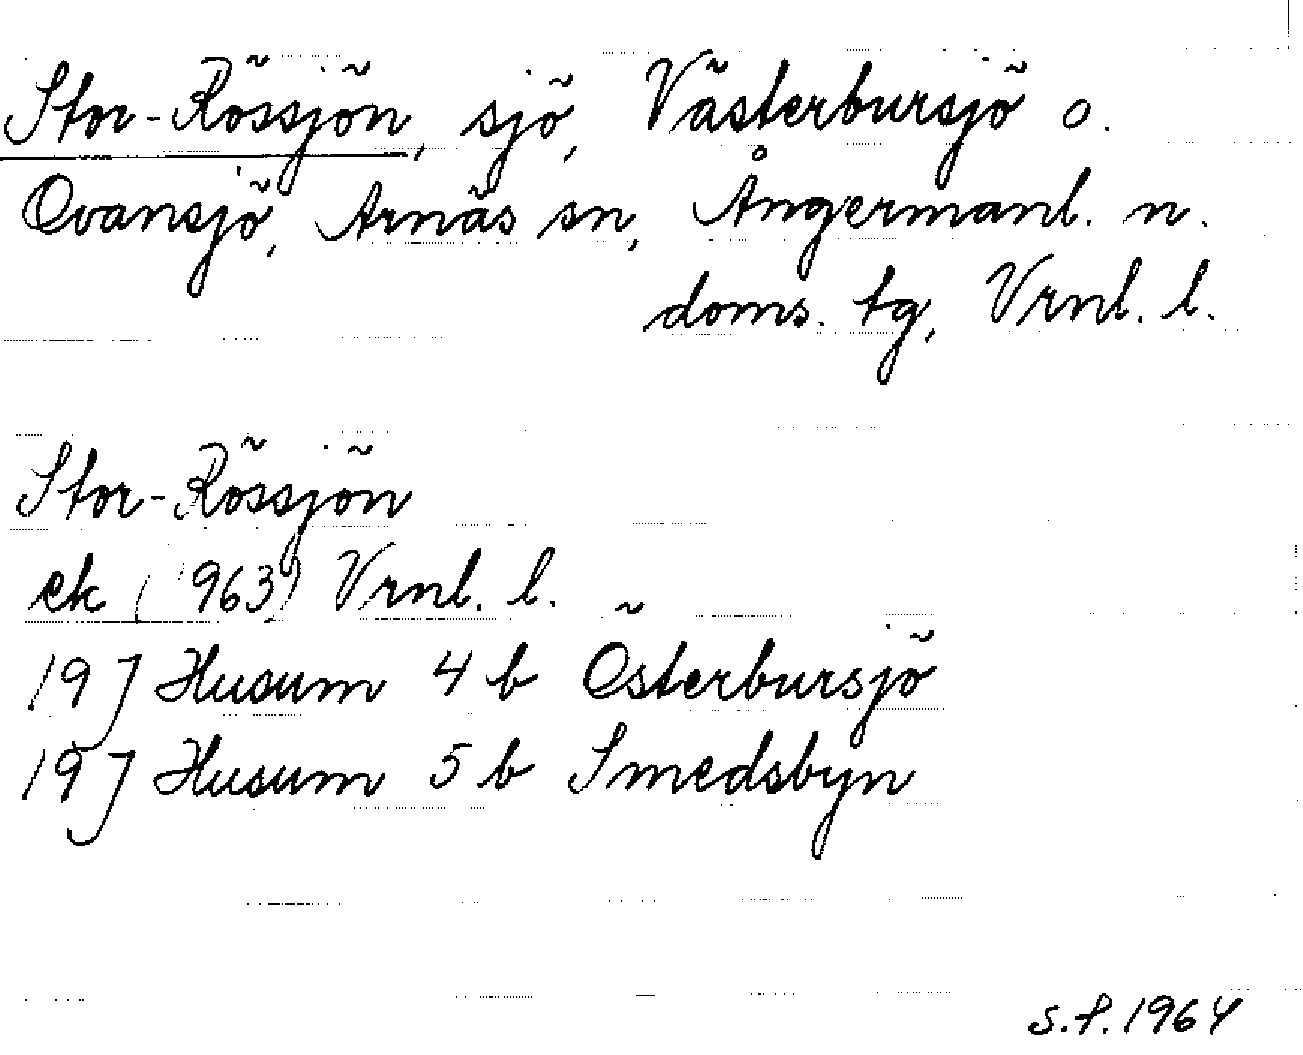 Stor-Rössjön, sjö, Västerbursjö o.
Ovansjö, Arnäs sn, Ångermanl. n.
doms. tg, Vrnl. l.
Stor-Rössjön
ek (1963) Vrnl. l.
19J Husum 4 b Österbursjö
19J Husum 5 b Smedsbyn
S.f. 1964